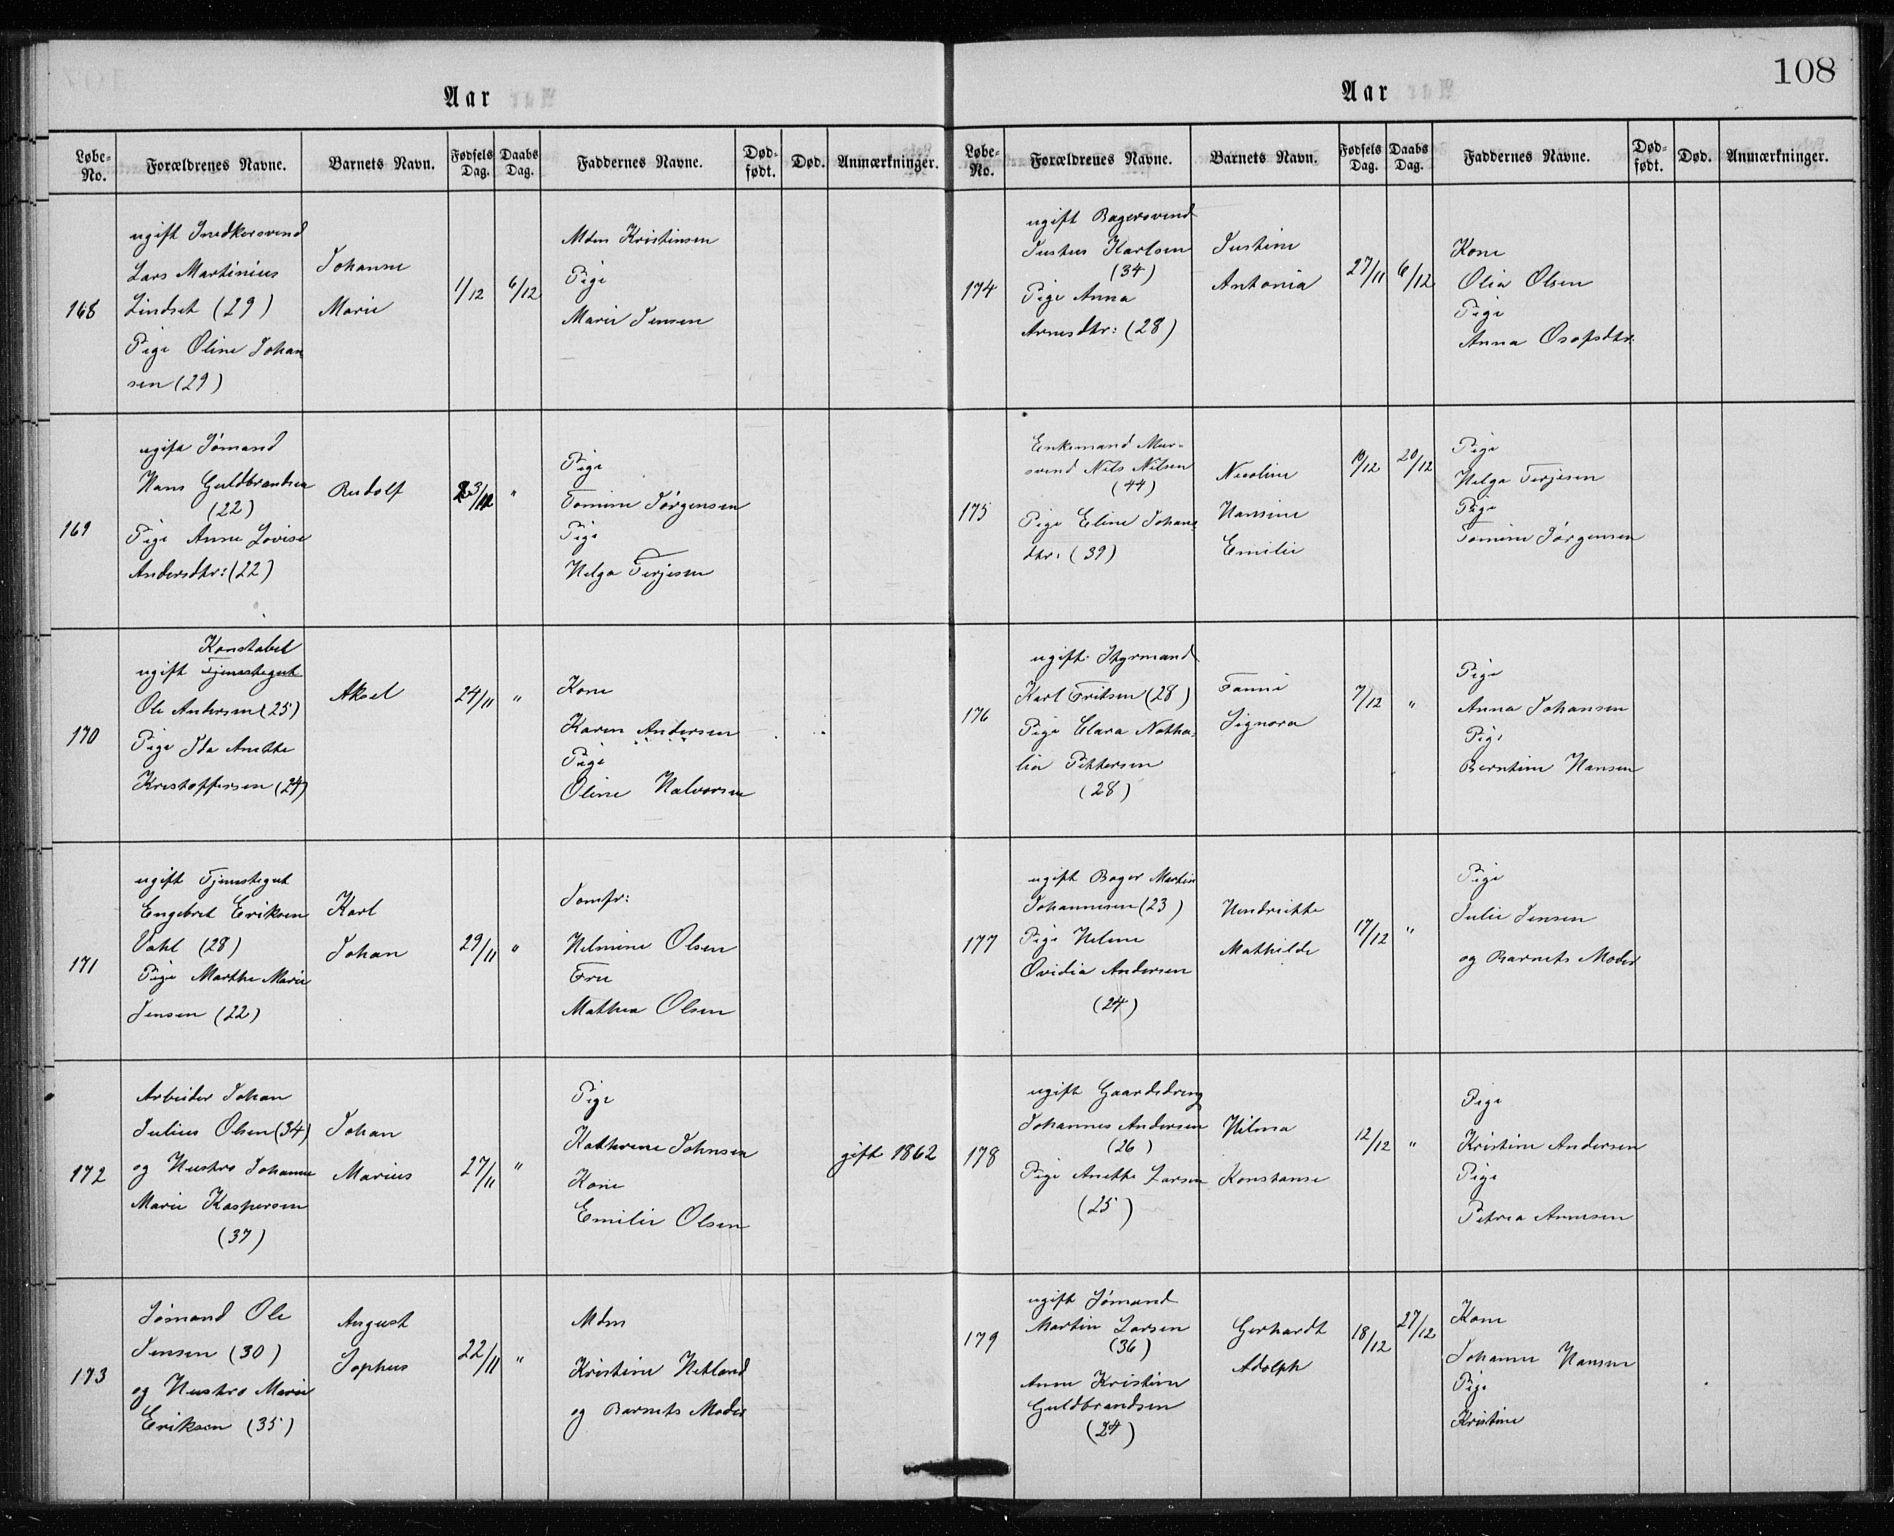 108
Aar
Løbe-No.
Forældrenes Navne.
Barnets Navn.
Fødsels Dag.
Daabs Dag.
Faddernes Navne.
Død-født.
Død.
Anmærkninger.
168
ugift Snedkersvend
Lars Martinius
Lindset (29)
Pige Oline Johan
sen (29)
Johanne
Marie
1/12
6/12
Mdm Kristinsen
Pige
Marie Jensen
169
ugift Sømand
Hans Guldbrandsen
(22)
Pige Anne Lovise
Andersdtr: (22)
Rudolf
"
Pige
Tomine Jørgensen
Pige
Helga Terjesen
170
Konstabel
ugift Tjenestegut
Ole Andersen (25)
Pige Ida Anette
Kristoffersen (24)
Aksel
24/11
"
Kone
Karen Andersen
Pige
Oline Halvorsen
171
ugift Tjenestegut
Engebret Eriksen
Vahl (28)
Pige Marthe Marie
Jensen (22)
Karl
Johan
29/11
"
Jomfr:
Helmine Olsen
Fru
Mathea Olsen
172
Arbeider Johan
Julius Olsen (34)
og Hustro Johanne
Marie Kaspersen
(37)
Johan
Marius
27/11
"
Pige
Kathrine Johnsen
Kone
Emilie Olsen
gift 1862
173
Sømand Ole
Jensen (30)
og Hustro Marie
Eriksen (35)
August
Sophus
22/11
"
Mdm
Kristine Hetland
og Barnets Moder
Aar
Løbe-No.
Forældrenes Navne.
Barnets Navn.
Fødsels Dag.
Daabs Dag.
Faddernes Navne.
Død-født.
Død.
Anmærkninger.
174
ugift Bagersvend
Justus Karlsen
(34)
Pige Anna
Arnesdtr: (28)
Justine
Antonia
27/11
6/12
Kone
Olia Olsen
Pige
Anna Osofsdtr.
175
Enkemand Mur-
svend Nils Nilsen
(44)
Pige Eline Johans
dtr: (39)
Nicoline
Hansine
Emilie
20/12
Pige
Helga Terjesen
Pige
Tomine Jørgensen
176
ugift Styrmand
Karl Fritsen (28)
Pige Clara Natha-
lia Pettersen
(28)
Fanni
Signora
7/12
"
Pige
Anna Johansen
Pige
Berntine Hansen
177
ugift Bager Martin
Johannesen (23)
Pige Helene
Ovidia Andersen
(24)
Hendriette
Mathilde
17/12
"
Pige
Julie Jensen
og Barnets Moder
178
ugift Gaardsdreng
Johannes Andersen
(26)
Pige Anette Larsen
(25)
Hilma
Konstanse
12/12
"
Pige
Kristine Andersen
Pige
Petrea Annesen
179
ugift Sømand
Martin Larsen
(36)
Anne Kristine
Guldbrandsen
(24)
Gerhardt
Adolph
18/12
27/12
Kone
Johanne Hansen
Pige
Kristine